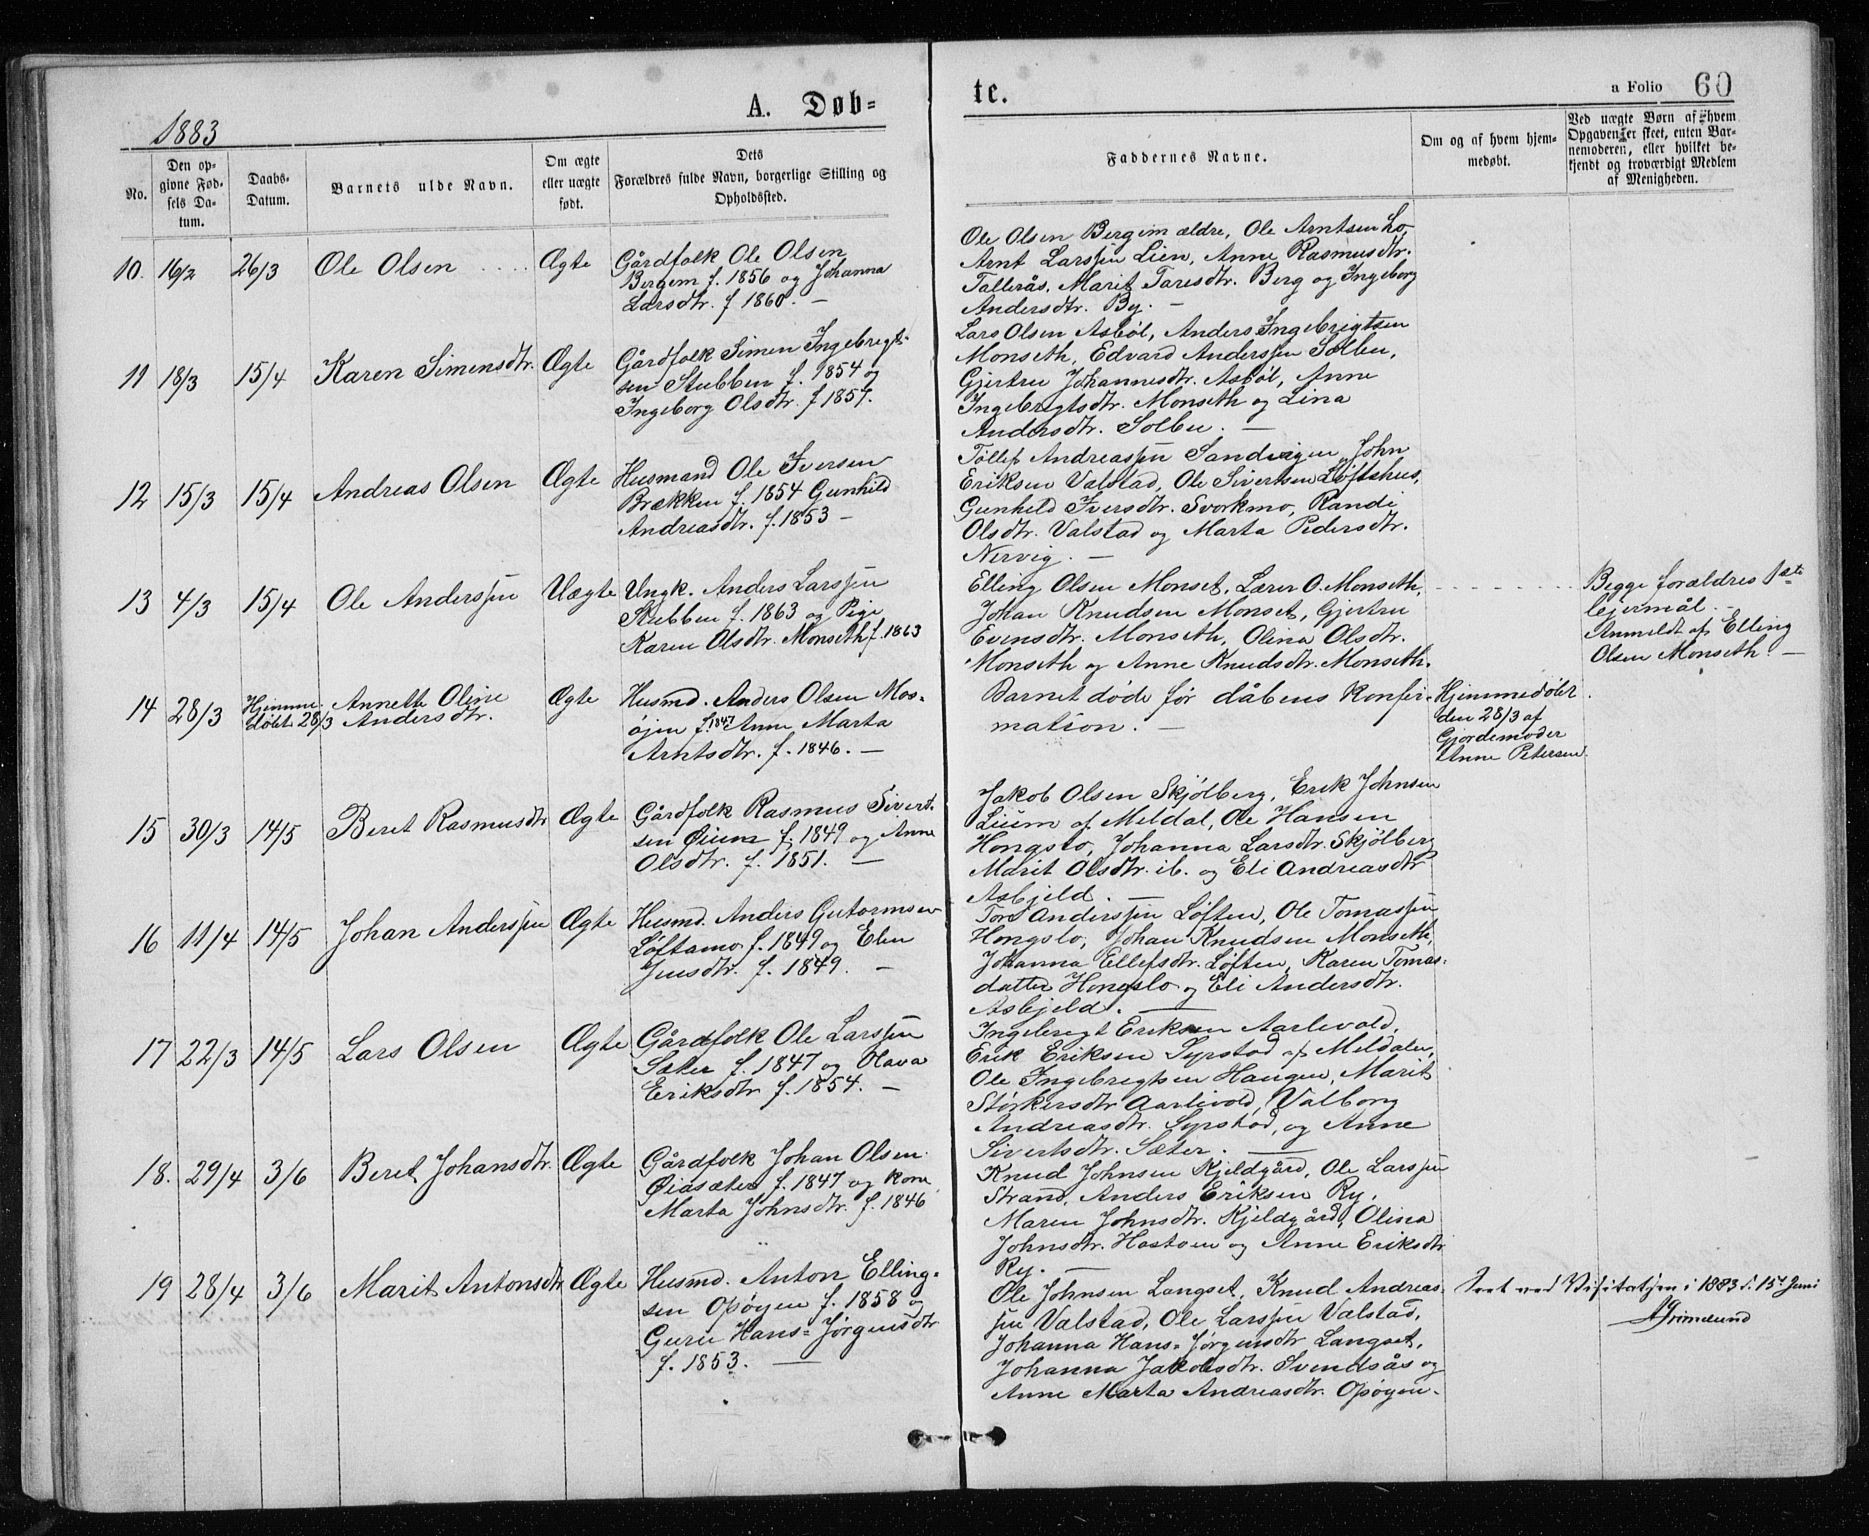 1883
A. Døb-
te.
a Folio 60
No.
Den op-
givne Fød-
sels Da-
tum.
Daabs-
Datum.
Barnets fulde Navn.
Om ægte
eller uægte
født.
Dets
Forældres fulde Navn, borgerlige Stilling og
Opholdssted.
Faddernes Navne.
Om og af hvem hjem-
medøbt.
Ved uægte Børn af hvem
Opgaven er skeet, enten Bar-
nemoderen, eller hvilket be-
kjendt og troværdigt Medlem
af Menigheden.
10. 16/2 26/3 Ole Olsen Ægte
Gårdfolk Ole Olsen
Bergem f. 1856 og Johanna
Larsdtr. f 1860. –
Ole Olsen Bergem ældre, Ole Arntsen Lo,
Arnt Larssen Lien, Anne Rasmusdtr.
Tallerås, Marit Toresdtr. Berg og Ingeborg
Andersdtr. By. –
11 18/3 15/4 Karen Simensdtr. Ægte
Gårdfolk Simen Ingebrigt-
sen Stubben f. 1854 og
Ingeborg Olsdtr. f 1857.
Lars Olsen Asbøl, Anders Ingebrigtsen
Monseth, Edvard Anderssen Solbu,
Gjertru Johannesdtr. Asbøl, Anne
Ingebrigtsdtr. Monseth og Lina
Andersdtr. Solbu. –
12 15/3 15/4 Andreas Olsen Ægte
Husmand Ole Iversen
Brækken f. 1854 Gunhild
Andreasdtr. f. 1853 –
Tollef Andreassen Sandvigen, John
Eriksen Valstad, Ole Sivertsen Løftshus,
Gunhild Iversdtr. Svorkmo, Randi
Olsdtr. Valstad og Marta Pedersdtr.
Nervig. –
13 4/3 15/4 Ole Anderssen Uægte
Ungk. Anders Larssen
Stubben f. 1863 og Pige
Karen Olsdtr. Monseth f. 1863
Elling Olsen Monset, Lærer O. Monseth,
Johan Knudsen Monset, Gjertru
Evensdtr. Monseth, Olina Olsdtr.
Monseth og Anne Knudsdtr. Monseth.
Begge forældres 1ste
lejermål. –
Anmeldt af Elling
Olsen Monseth. –
14 28/3 Hjemme-
døbt 28/3
Annette Oline
Andersdtr.
Ægte
Husmd. Anders Olsen Mos-
øjen f. 1847 Anne Marta
Arntsdtr. f. 1846. –
Barnet døde før dåbens konfir-
mation. –
Hjemmedøbt
den 28/3 af
Gjordemoder
Anne Petersen.
15 30/3 14/5 Beret Rasmusdtr Ægte
Gårdfolk Rasmus Sivert-
sen Øium f. 1849 og Anne
Olsdtr. f. 1851. –
Jakob Olsen Skjølberg, Erik Johnsen
Lium af Meldal, Ole Hansen
Hongslo, Johanna Larsdtr. Skjølberg
Marit Olsdtr. ib. og Eli Andreasdtr
Asbjeld. –
16 11/4 14/5 Johan Anderssen Ægte
Husmd. Anders Gutormsen
Løftamo f. 1849 og Elen
Jensdtr. f. 1849. –
Tore Anderssen Løften, Ole Tomassen
Hongslo, Johan Knudsen Monseth,
Johanna Ellefsdtr. Løften, Karen Tomas-
datter Hongslo og Eli Andersdtr.
Asbjeld. –
17 22/3 14/5 Lars Olsen Ægte
Gårdfolk Ole Larssen
Sæter f. 1847 og Olava
Eriksdtr f. 1854. –
Ingebrigt Eriksen Aarlivold,
Erik Eriksen Syrstad af Meldalen,
Ole Ingebrigtsen Haugen, Marit
Størkersdtr Aarlivold, Valborg
Andreasdtr. Syrstad, og Anne
Sivertsdtr. Sæter. –
18. 29/4 3/6 Beret Johansdtr. Ægte
Gårdfolk Johan Olsen
Øiasæter f. 1847 og kone
Marta Johnsdtr. f. 1846
Knud Johnsen Kjeldgård, Ole Larssen
Strand, Anders Eriksen Ry,
Maren Johnsdtr. Kjeldgård, Olina
Johnsdtr. Hostoen og Anne Eriksdtr
Ry. –
19 28/4 3/6 Marit Antonsdtr Ægte
Husmd. Anton Elling-
sen Opøyen f. 1858 og
Guru Hans-Jørgensdtr
f. 1853. –
Ole Johnsen Langset, Knud Andreas-
sen Valstad, Ole Larssen Valstad,
Johanna Hans-Jørgensdtr Langset,
Johanna Jakobsdtr. Svendsås og
Anne Marta Andreasdtr. Opøyen.
Seet ved Visitatsen i 1883 d. 15de Juni
Grimelund